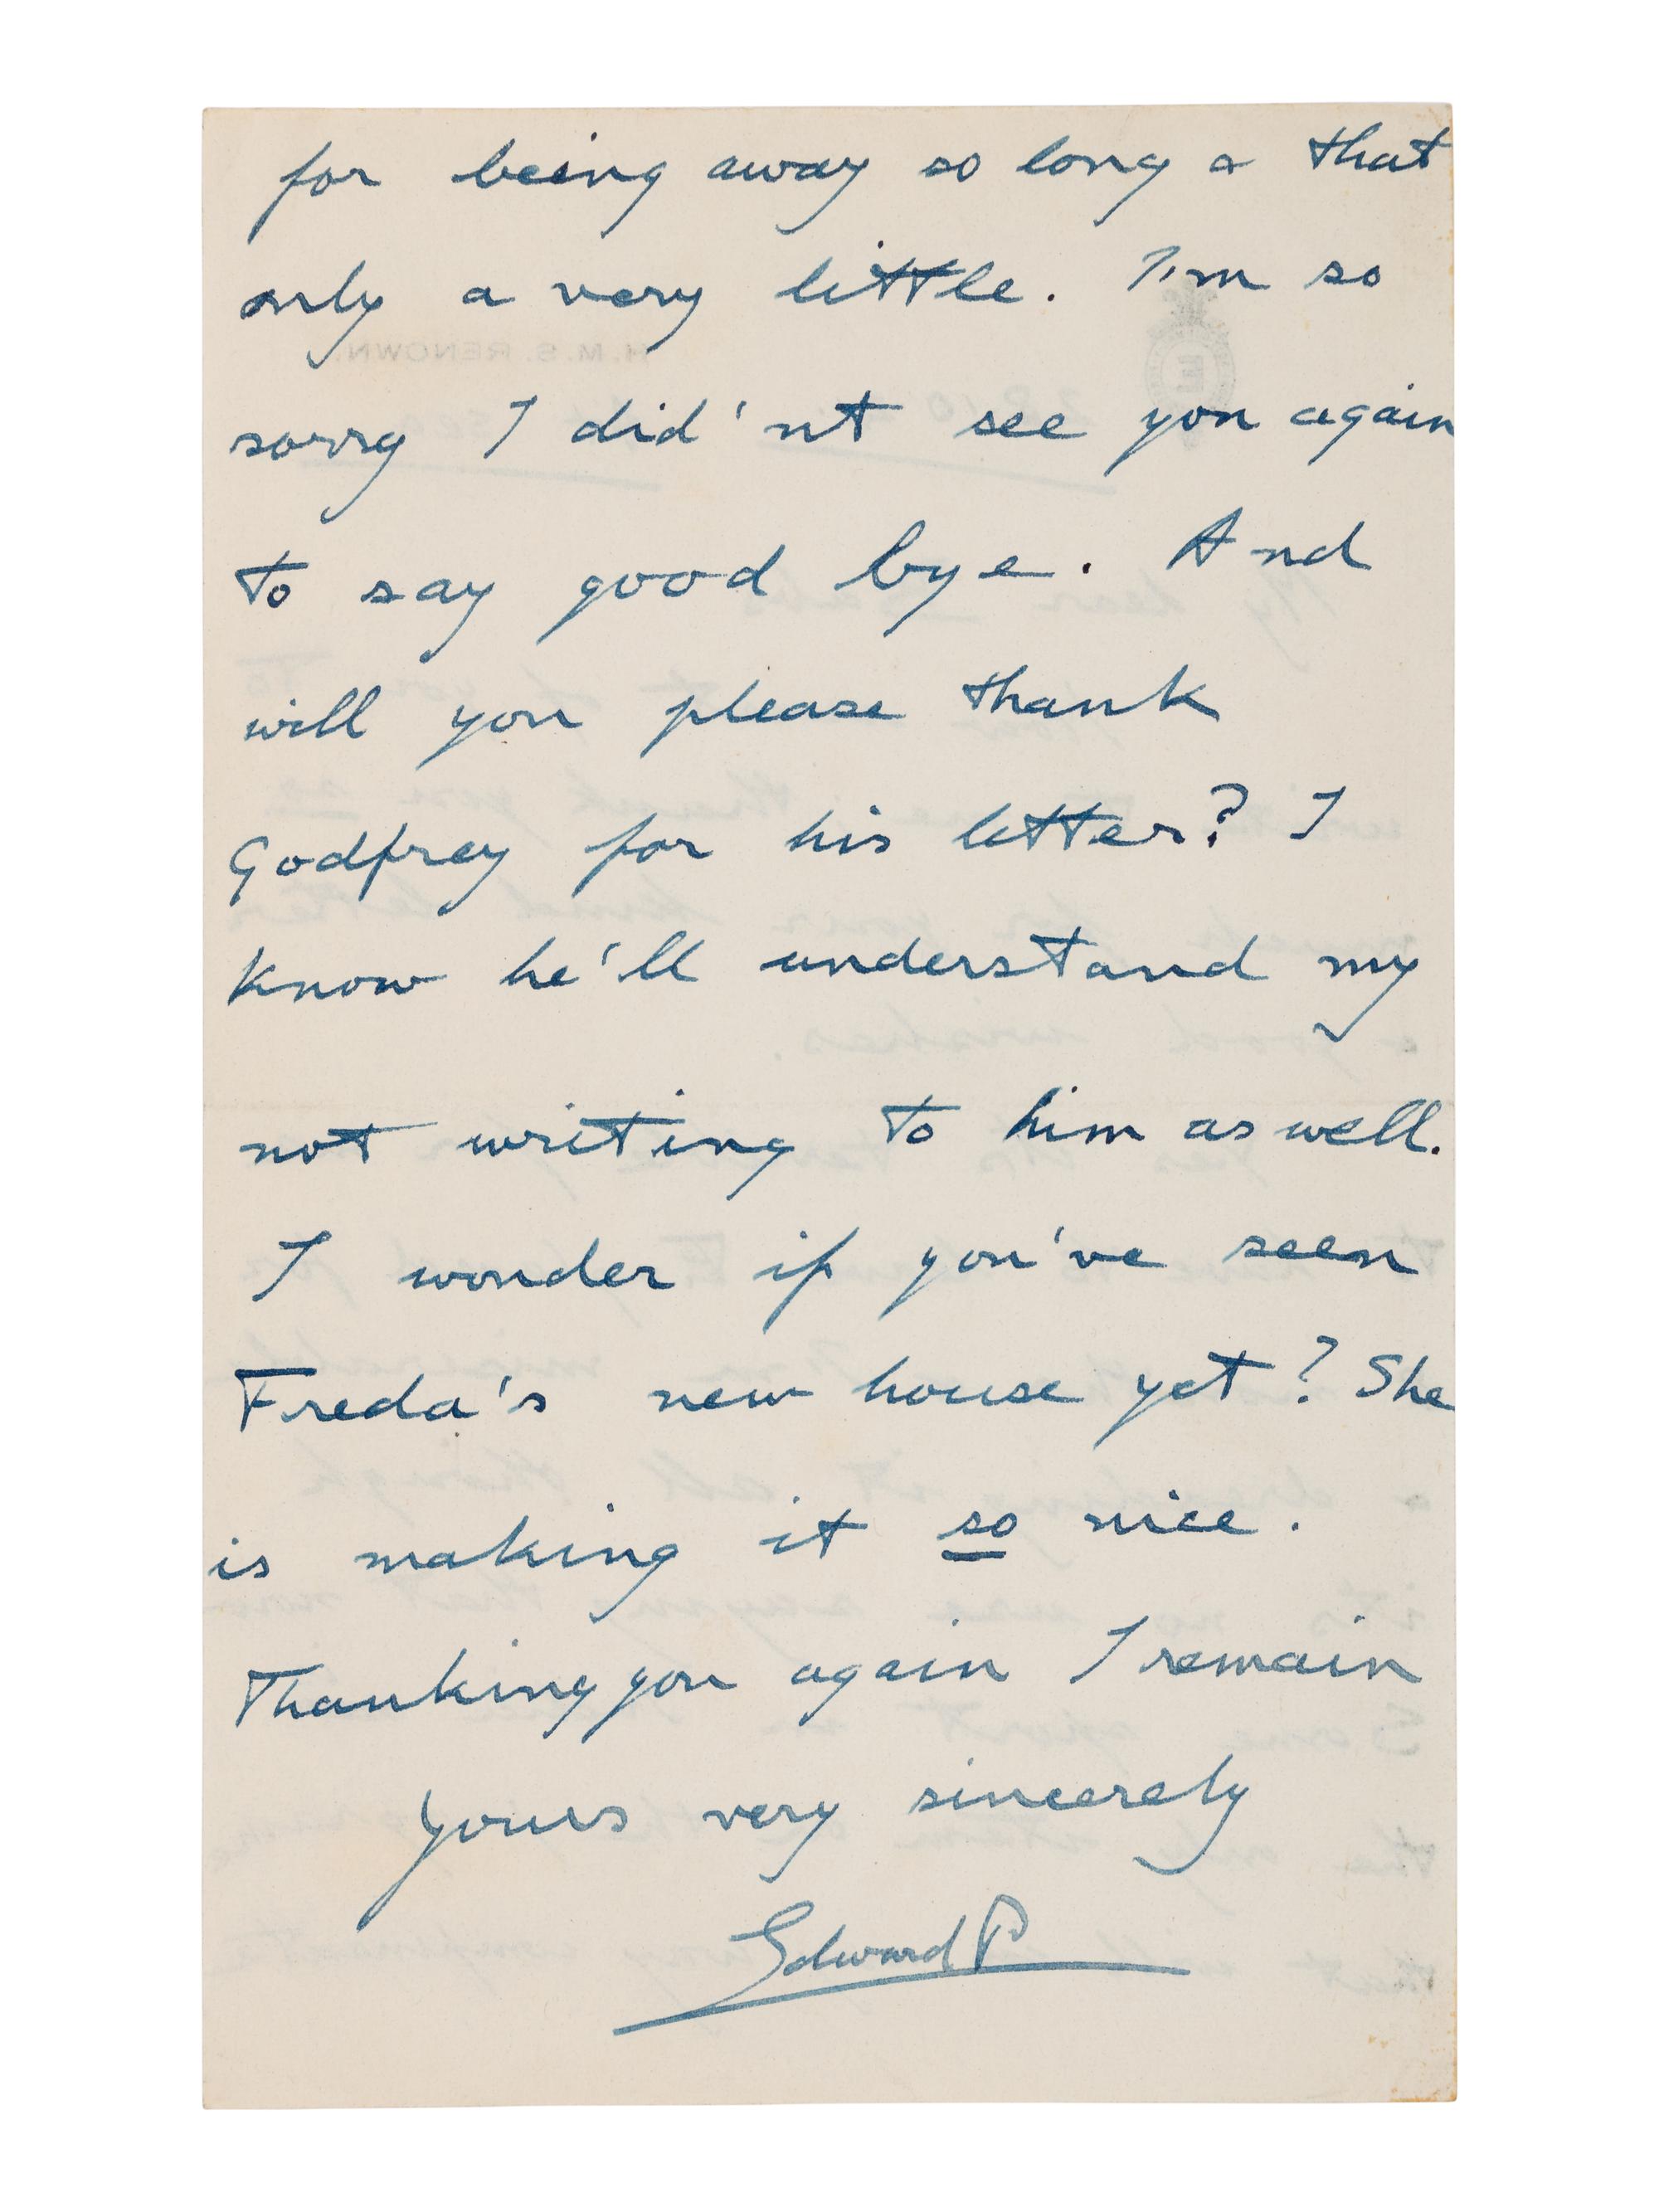 for being away so long & that
only a very little. I'm so
sorry I did'nt see you again
to say good bye. And
will you please thank
Godfrey for his letter? I
know he'll understand my
not writing to him as well.
I wonder if you've seen
Freda's new house yet? She
is making it so nice.
Thanking you again I remain
Yours very sincerely
Edward P
H.M.S. RENOWN.